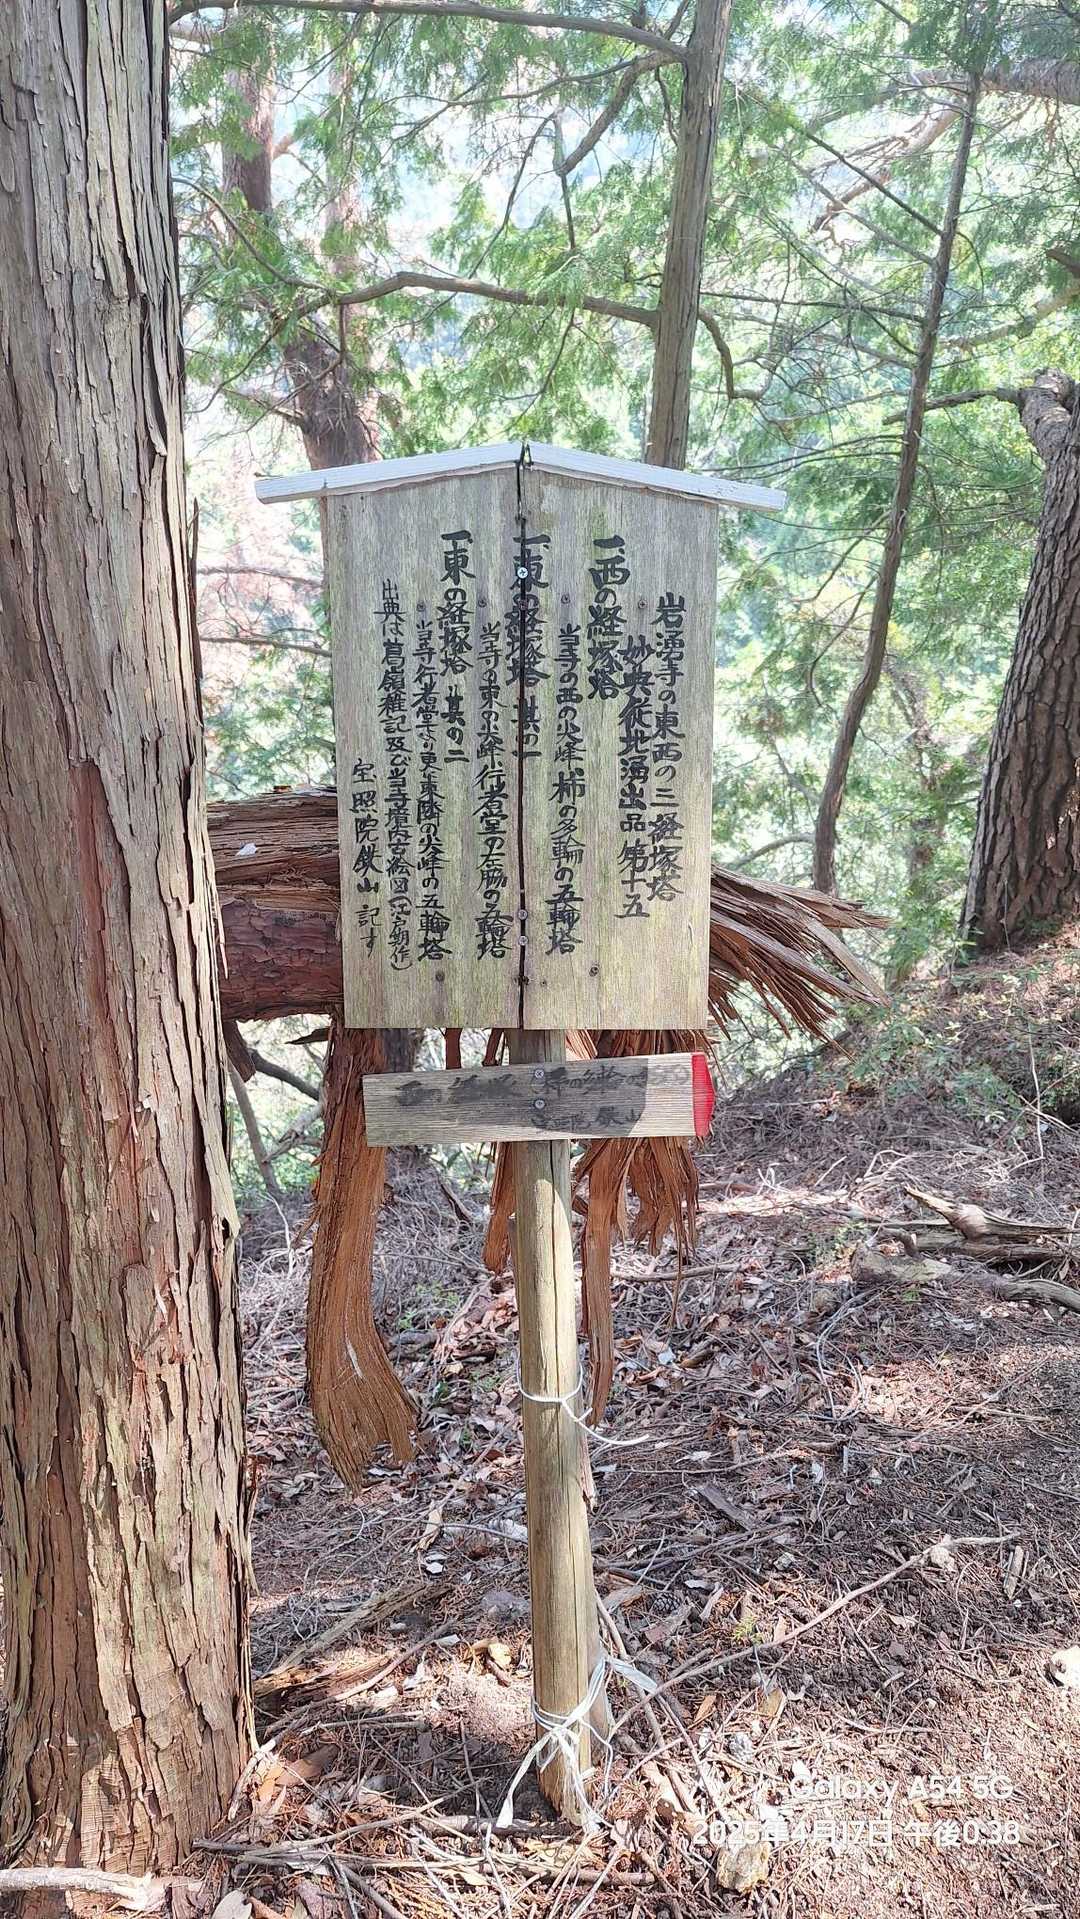 岩湧寺の東西の三経塚塔
妙典従地湧出品第十五
一、西の経塚塔
当寺の西の尖峰、柿の多輪の五輪塔
一、東の経塚塔 其の一
当寺の東の尖峰、行者堂の左脇の五輪塔
一、東の経塚塔 其の二
当寺行者堂より更に東隣の尖峰の五輪塔
出典は葛嶺雑記及び当寺境内古絵図(江戸期作)
宝照院鉄山 記す
Galaxy A54 5G
2025年4月17日 午後0:38